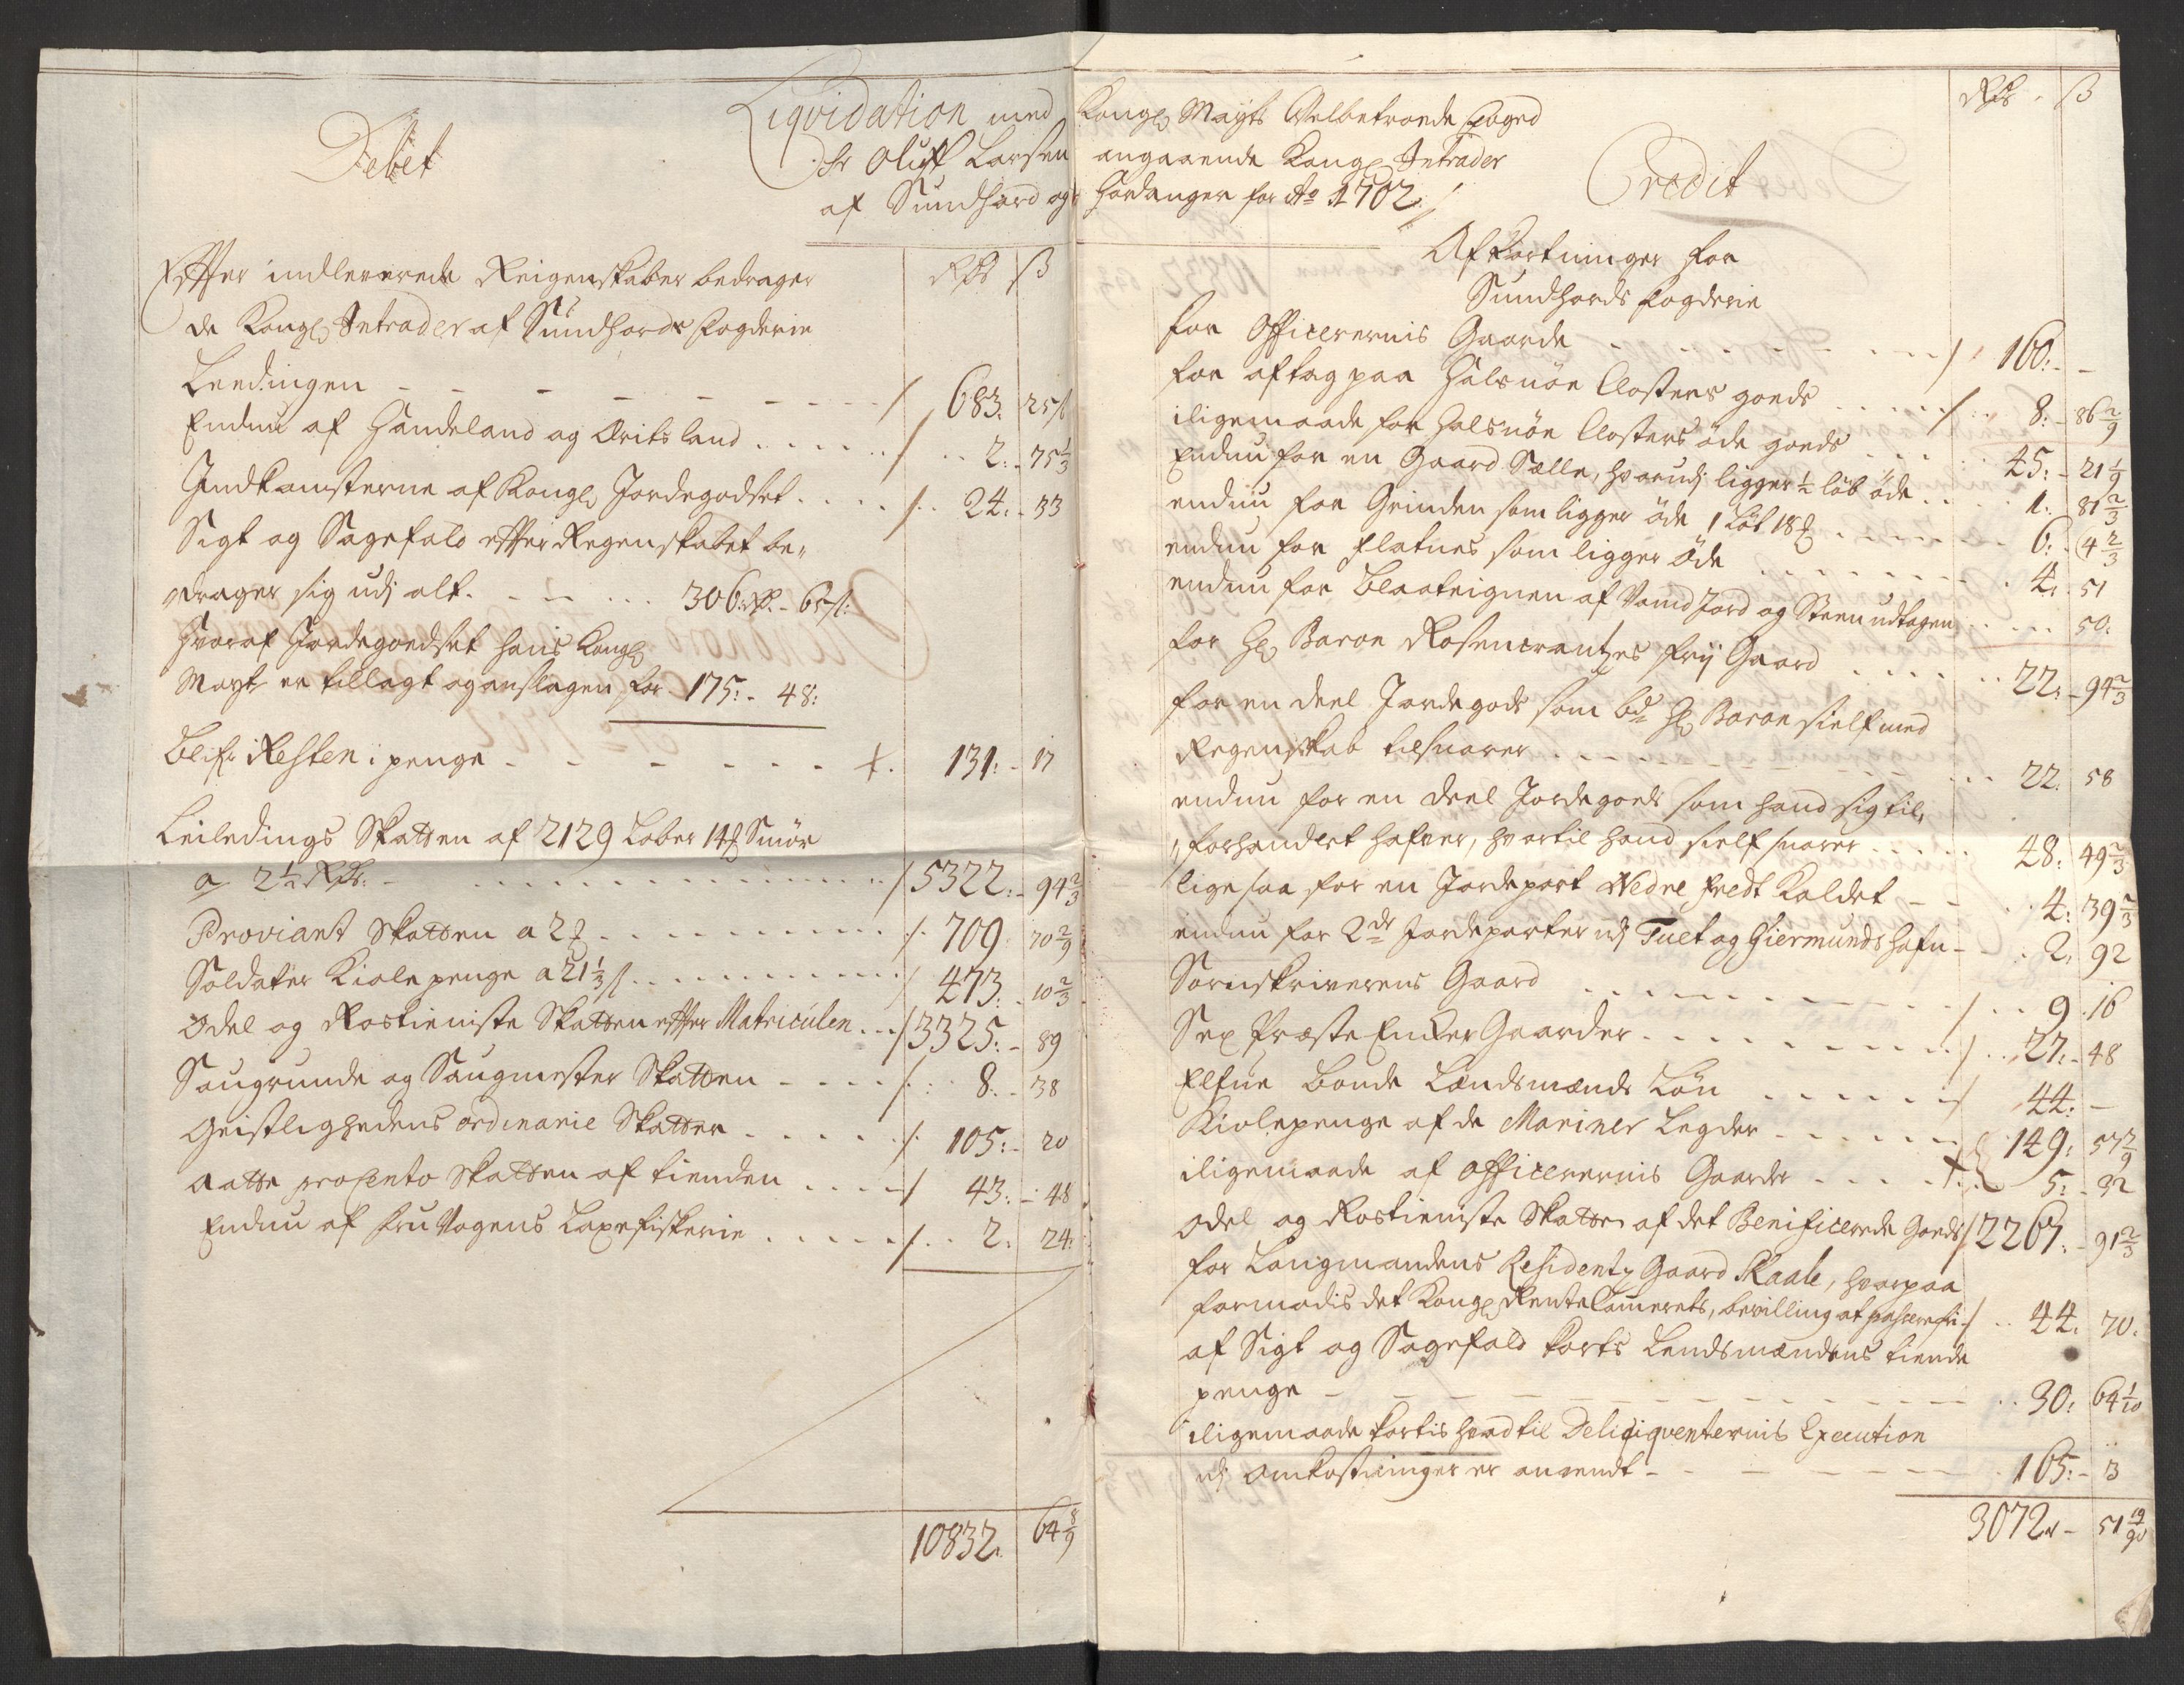 Liqvidation med Kongl Mayts Velbetroede foged
Hr Oluff Larsen angaaende Kongl Intrader
af Sundhord og Hardanger for Ao 1702
Debet
Rdr ß
Effter indleverede Reigenskaber bedrager
de Kongl Intrader af Sundhords fogderie
Leedingen 683. 25 ß
Endnu af Handeland og Qvitsland 2: 75 1/3
Indkomsterne af Kongl Jordegodset 24: 33
Sigt og Sagefald effter Regenskabet be,,
,,drager sig udj alt 306 rdr 65 ß:
Hvoraf Jordegoedset hans Kongl
Mayt er tillagt og anslagen for 175: 48:
Blifr Resten i penge 131: 17
Leiledings Skatten af 2129 Løber 14 Smør
a 2 1/2 Rdr: 5322: 94 2/3
Proviant Skatten a 2 709 70 2/9
Soldater Kiole penge a 21 1/3 ß 473. 10 2/3
Odel og Rostieniste Skatten effter Matriculen 3325: 89
Saugrunde og Saugmester Skatten 8. 38
Geistlighedens ordinarie Skatter 105: 20
Aatte procento Skatten af tienden 43: 48
Endnu af fru Vogens Laxefiskerie 2: 24:
10832. 64 8/9
Rdr ß
Credit
Afkortninger for
Sundhords fogderie
for Officerernis Gaarde 160: -
for aftag paa Halsnøe Closters goeds 8: 86 2/9
iligemaade for Halsnøe Closters øde goeds 45: 21 1/9
Endnu for en Gaard Sælle, hvorudj ligger 1/2 løb øde 1. 81 2/3
endnu for Grinden som ligger øde 1 Løb 18 6: 4 2/3
endnu for flatnes som ligger øde 4. 51
endnu for Blaateignen af Vand Jord og Steen udtagen 50:
for Hl Baron Rosencrantzes frij Gaard 22: 94 2/3
for en deel Jordegods som bde Hl Baron sielf med
Regenskab tilsvarer 22. 58
endnu for en deel Jordegods som hand sig til,,
,,forhandlet hafver, hvortil hand sielf svarer 48: 49 2/3
ligesaa for en Jordepart Nedre fredt Kaldet 4: 39 2/3
endnu for 2de Jordeparter udj Tuet og Giermundshafn 2, 92
Sornskriverens Gaard 9. 16
Sex Præste Encker Gaarder 27. 48
Elfve Bonde Lændsmænds Løn 44: -
Kiolepenge af de Mariner Legder 149: 57 7/9
iligemaade af Officerernis Gaarder 5: 32
Odel og Rostieniste Skatter af det Benificerede Goeds 2267: 91 2/3
for Laugmandens Residentz Gaard Skaale, hvorpaa
formodis det Kongl RenteCammerets, bevilling at passere fri 44. 70.
af Sigt og Sagefald korts Lendsmændens tiende
penge 30: 64 1/10
iligemaade kortis hvad til Delinqventernis Execution
udj Omkostninger er anvendt 165: 3
3072 - 51 19/90